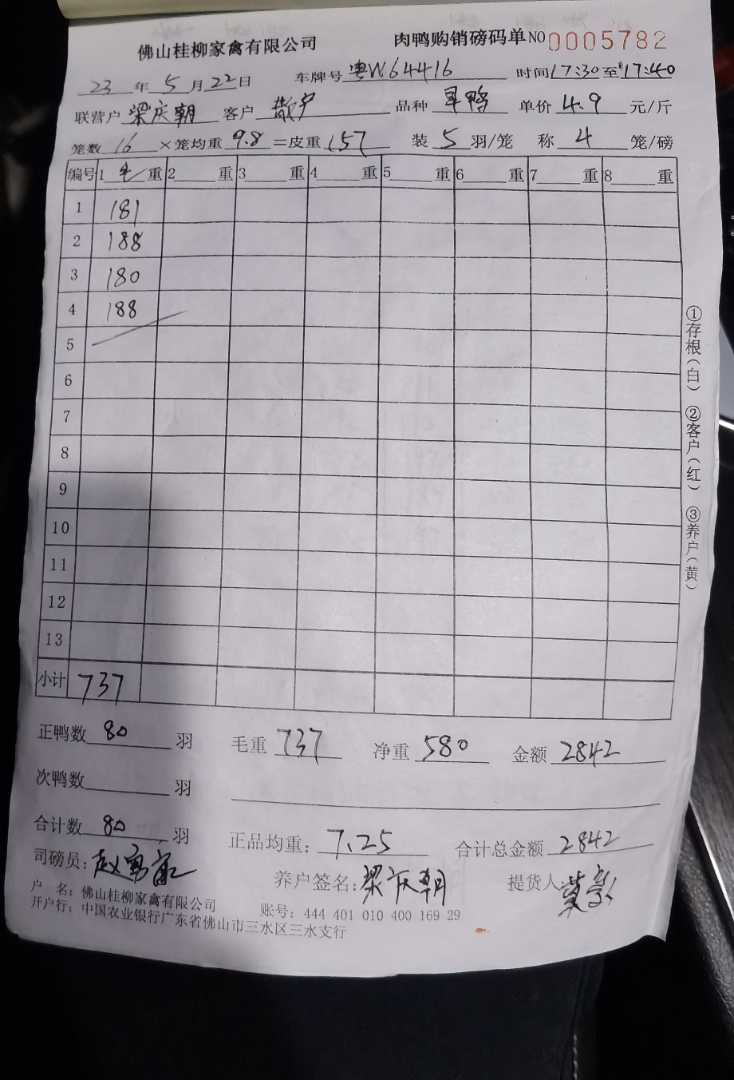 佛山桂柳家禽有限公司 肉鸭购销磅码单 NO 0005782
23 年 5 月 22 日 车牌号 粤W64416 时间 17:30 至 17:40
联营户 梁庆朝 客户 散户 品种 旱鸭 单价 4.9 元/斤
笼数 16 ×笼均重 9.8 =皮重 157 装 5 羽/笼 称 4 笼/磅
编号 1 毛 重 2 重 3 重 4 重 5 重 6 重 7 重 8 重
1 181
2 188
3 180
4 188
5
6
7
8
9
10
11
12
13
小计 737
①存根(白) ②客户(红) ③养户(黄)
正鸭数 80 羽 毛重 737 净重 580 金额 2842
次鸭数 羽
合计数 80 羽 正品均重: 7.25 合计总金额 2842
司磅员: 养户签名: 梁庆朝 提货人:
户 名: 佛山桂柳家禽有限公司 账号: 444 401 010 400 169 29
开户行: 中国农业银行广东省佛山市三水区三水支行